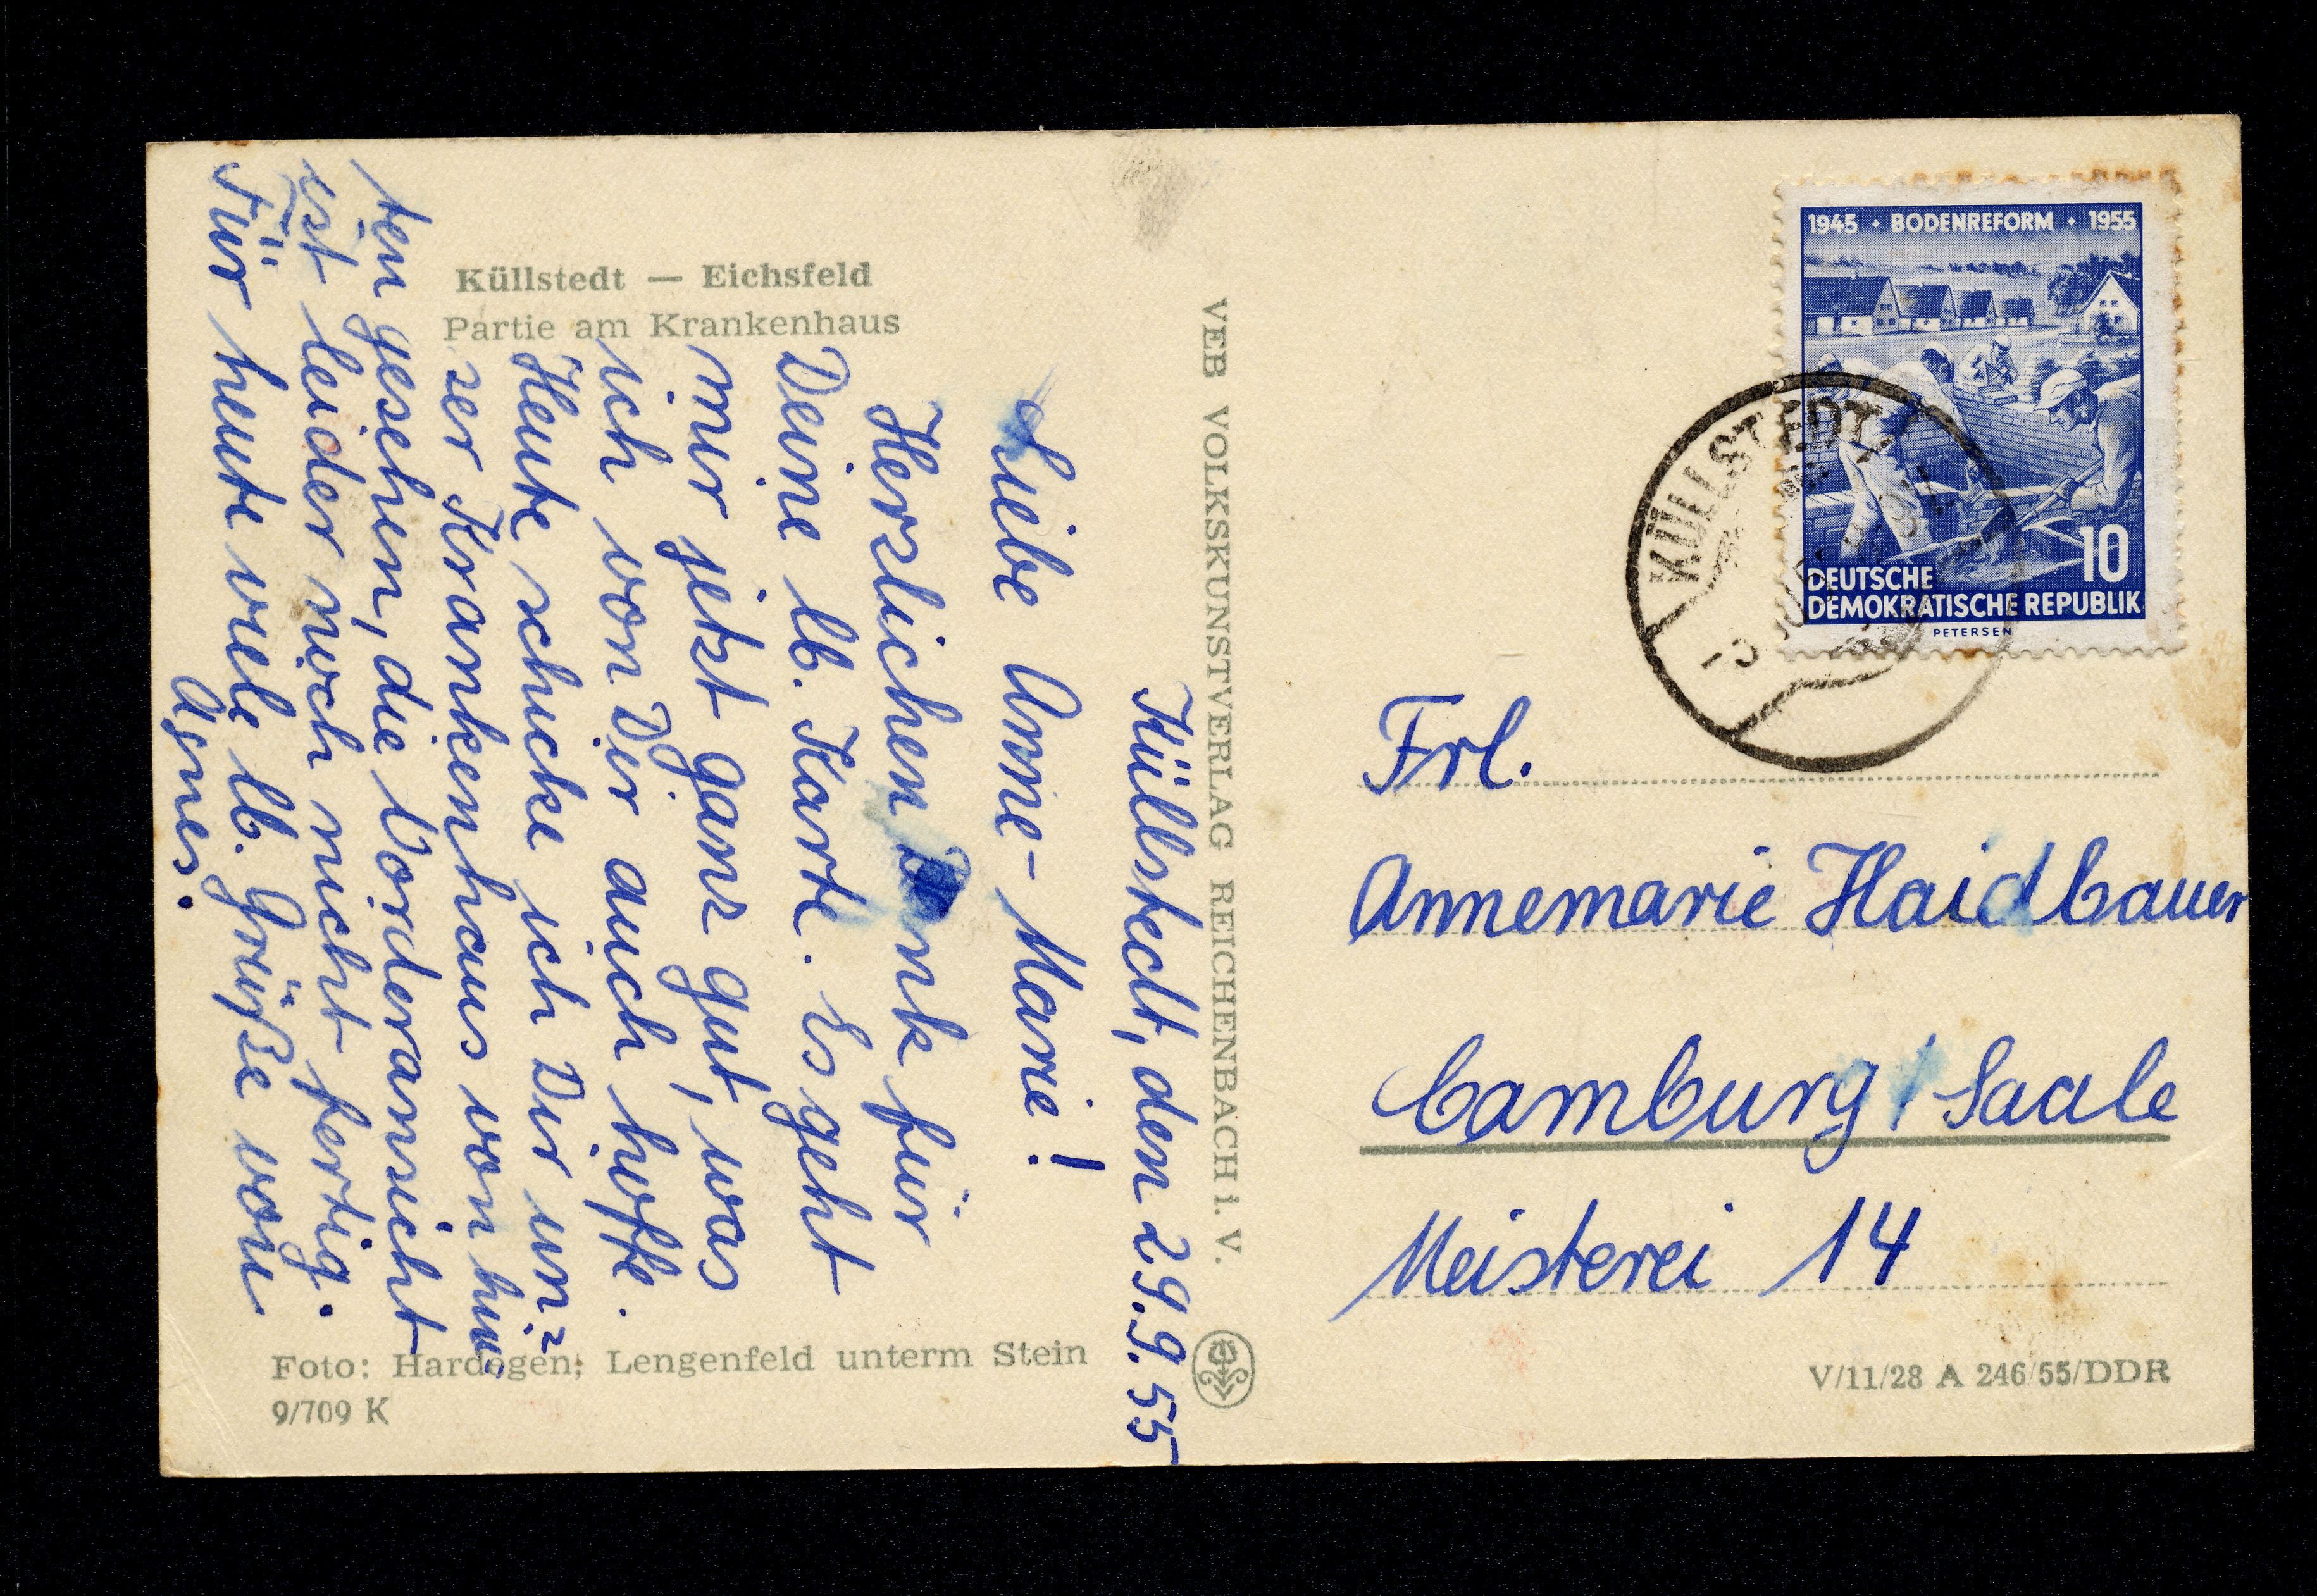 Küllstedt — Eichsfeld
Partie am Krankenhaus
Küllstedt, den 29.9.55
Liebe Anne-Marie!
Herzlichen Dank für
Deine lb. Karte. Es geht
mir jetzt ganz gut, was
ich von Dir auch hoffe.
Heute schicke ich Dir un=
zer Krankenhaus von hin=
ten gesehen, die Vorderansicht
ist leider noch nicht fertig.
Für heute viele lb. Grüße von
Agnes.
Foto: Hardegen; Lengenfeld unterm Stein
9/709 K
VEB VOLKSKUNSTVERLAG REICHENBACH i. V.
1945 • BODENREFORM • 1955
10
DEUTSCHE
DEMOKRATISCHE REPUBLIK
PETERSEN
KÜLLSTEDT
Frl.
Annemarie Haidbauer
Camburg / Saale
Meisterei 14
V/11/28 A 246/55/DDR